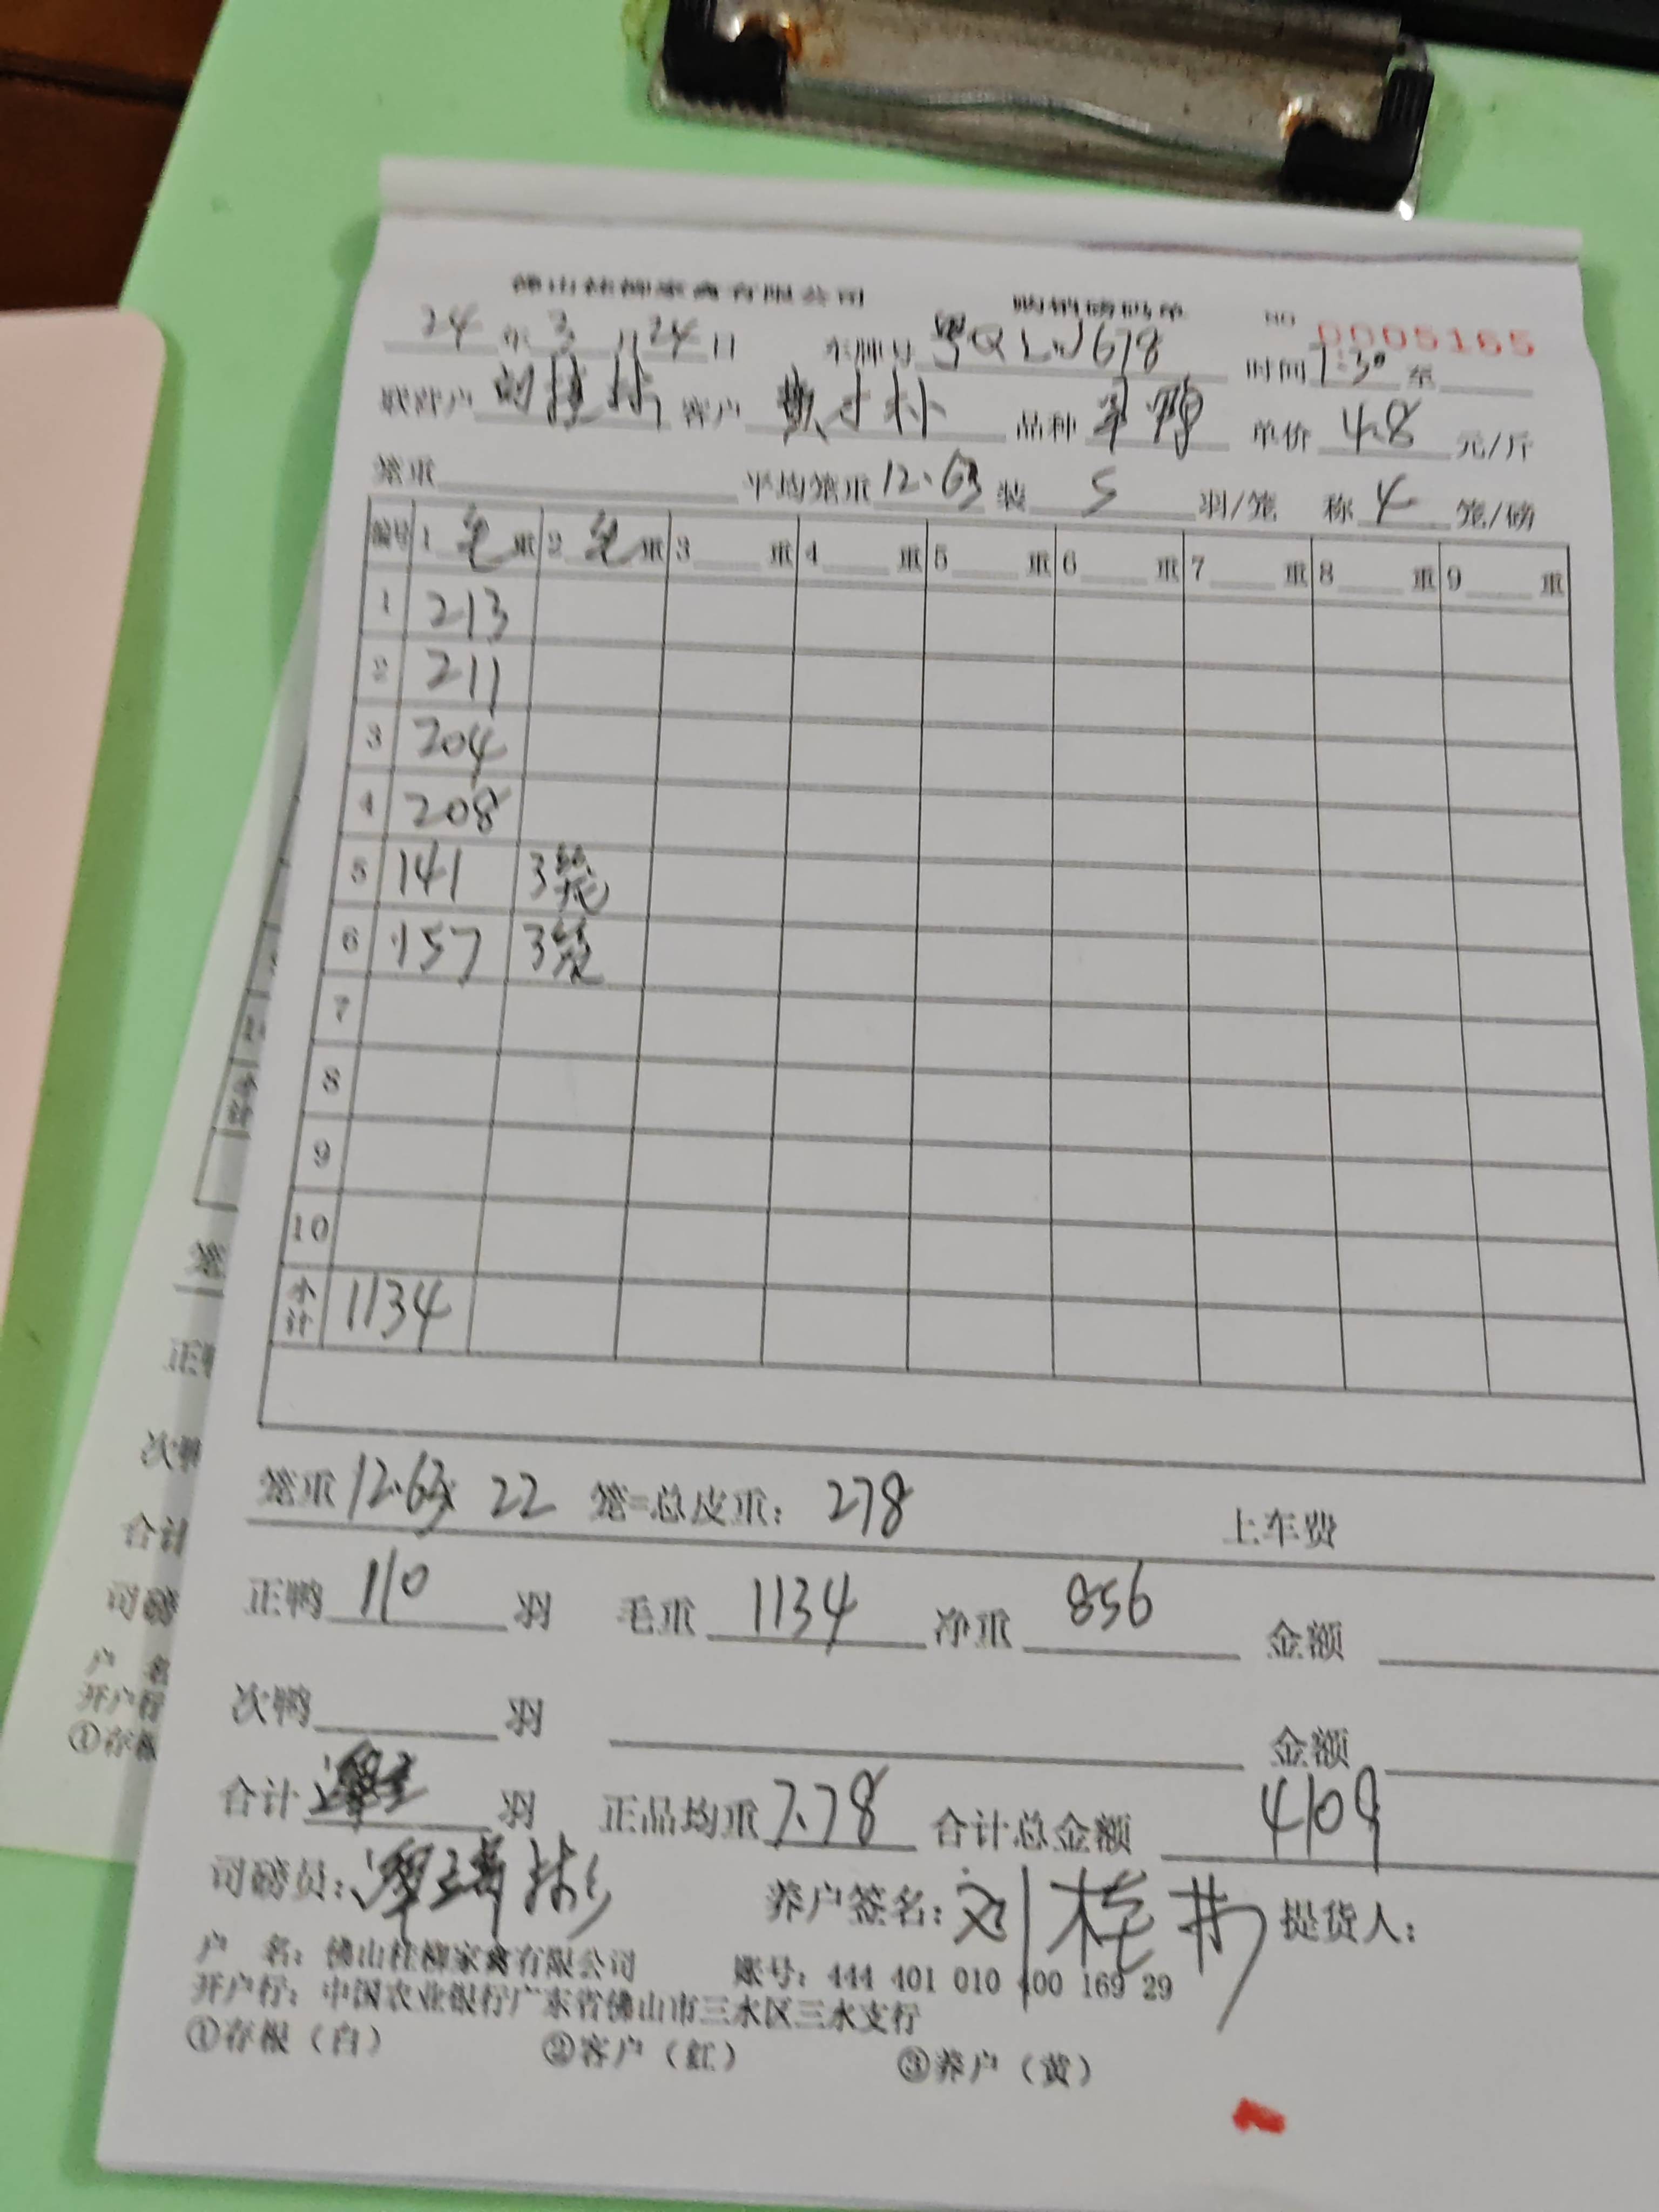 佛山桂柳家禽有限公司 购销磅码单 NO 0005165
24年3月24日 车牌号 粤Q 678 时间1:30至
联营户 客户 品种 单价4.8元/斤
笼重 平均笼重12.63装5羽/笼 称4笼/磅
编号 1毛重 2毛重 3重 4重 5重 6重 7重 8重 9重
1 213
2 211
3 204
4 208
5 141 3笼
6 157 3笼
7
8
9
10
小计 1134
笼重12.63x 22 笼=总皮重:278 上车费
正鸭110羽 毛重1134净重856 金额
次鸭 羽 金额
合计 羽 正品均重7.78合计总金额4109
司磅员: 养户签名:刘桂 提货人:
户 名:佛山桂柳家禽有限公司 账号:444 401 010 400 169 29
开户行:中国农业银行广东省佛山市三水区三水支行
①存根(白) ②客户(红) ③养户(黄)
笼
正鸭
次鸭
合计
司磅
户 名
开户行
①存根